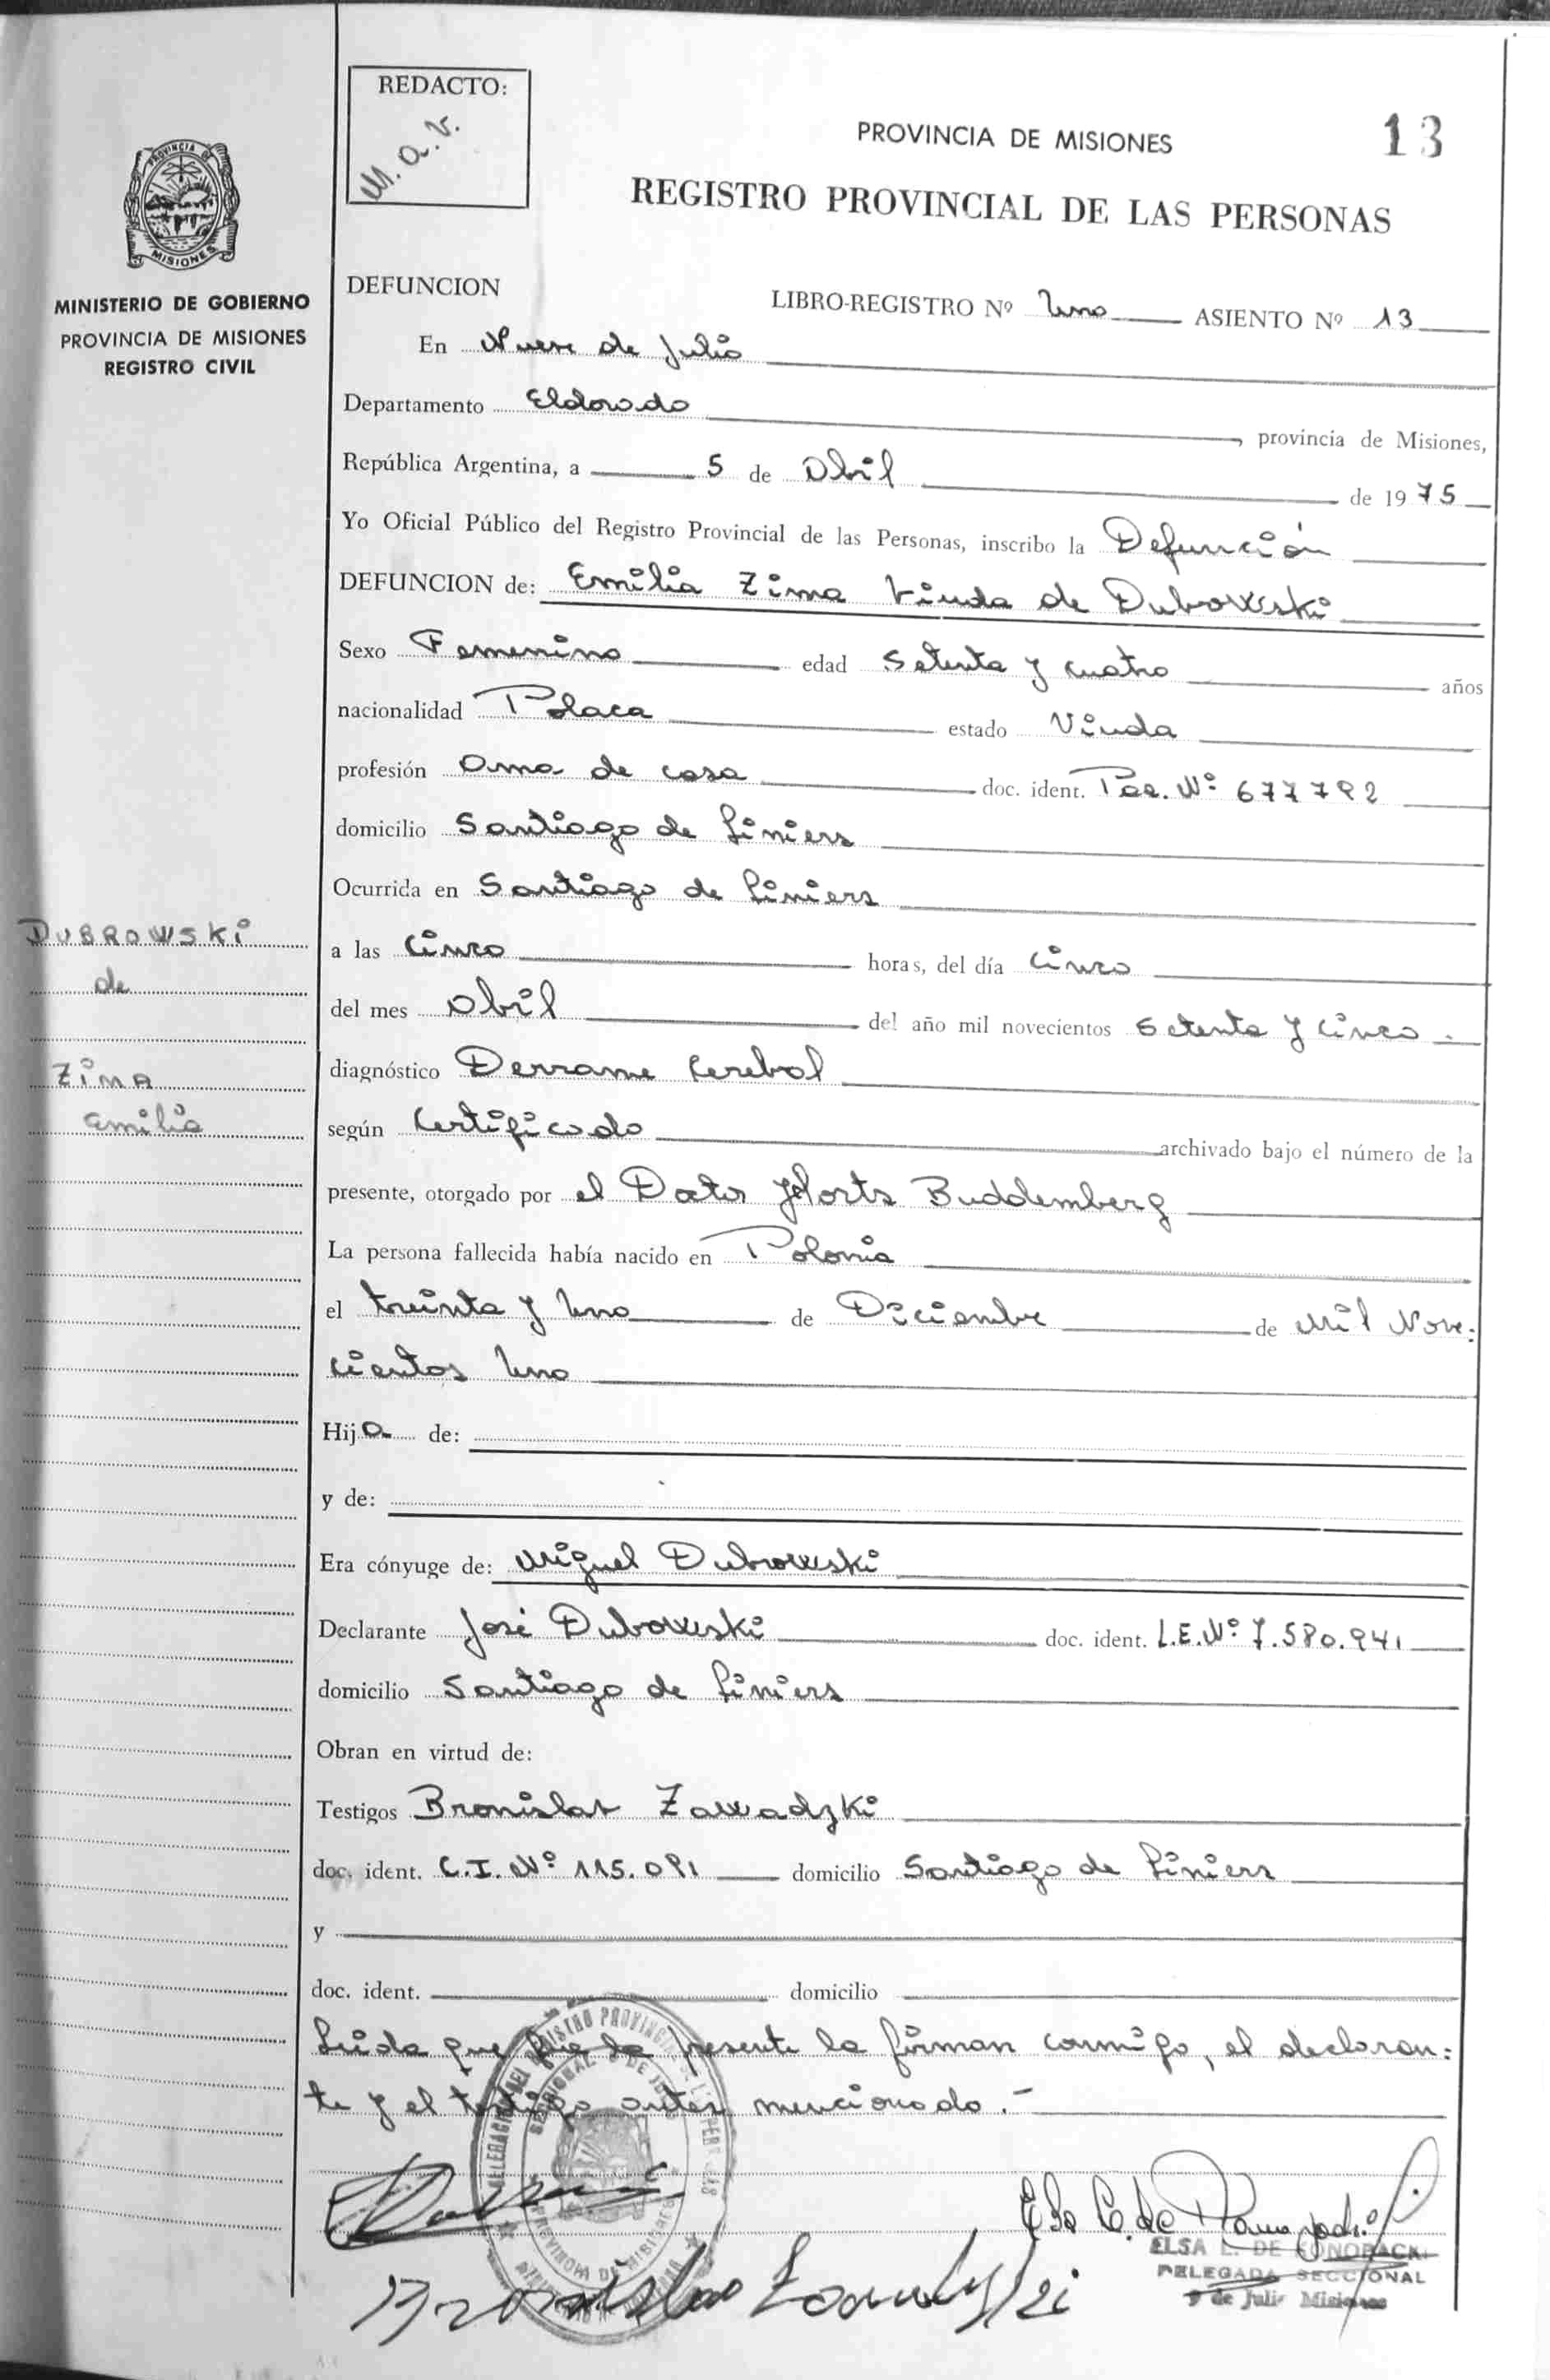 REDACTO:
M. a. r.
PROVINCIA DE MISIONES
13
REGISTRO PROVINCIAL DE LAS PERSONAS
PROVINCIA DE
MISIONES
MINISTERIO DE GOBIERNO
PROVINCIA DE MISIONES
REGISTRO CIVIL
DEFUNCION
LIBRO-REGISTRO Nº Uno ASIENTO Nº 13
En Nueve de Julio
Departamento Eldorado, provincia de Misiones,
República Argentina, a 5 de Abril de 1975
Yo Oficial Público del Registro Provincial de las Personas, inscribo la Defunción
DEFUNCION de: Emilia Zima Viuda de Dubowski
Sexo Femenino edad Setenta y cuatro años
nacionalidad Polaca estado Viuda
profesión Ama de casa doc. ident. Nº 677792
domicilio Santiago de Liniers
Ocurrida en Santiago de Liniers
DUBROWSKi
de
Zima
Emilia
a las Cinco horas, del día Cinco
del mes Abril del año mil novecientos Setenta y Cinco.
diagnóstico Derrame Cerebral
según Certificado archivado bajo el número de la
presente, otorgado por el Doctor Horts Buddemberg
La persona fallecida había nacido en Polonia
el treinta y Uno de Diciembre de Mil Nove:
cientos Uno
Hija de:
y de:
Era cónyuge de: Miguel Dubrowski
Declarante José Dubowski doc. ident. L.E.Nº 7.580.941
domicilio Santiago de Liniers
Obran en virtud de:
Testigos Bronislav Zawadzki
doc. ident. C.I. Nº 115.091 domicilio Santiago de Liniers
y
doc. ident. domicilio
Leída que fue la presente la firman conmigo, el declaran:
te y el testigo antes mencionado.-
ELSA L. DE
DELEGADA SECCIONAL
9 de Julio Misiones